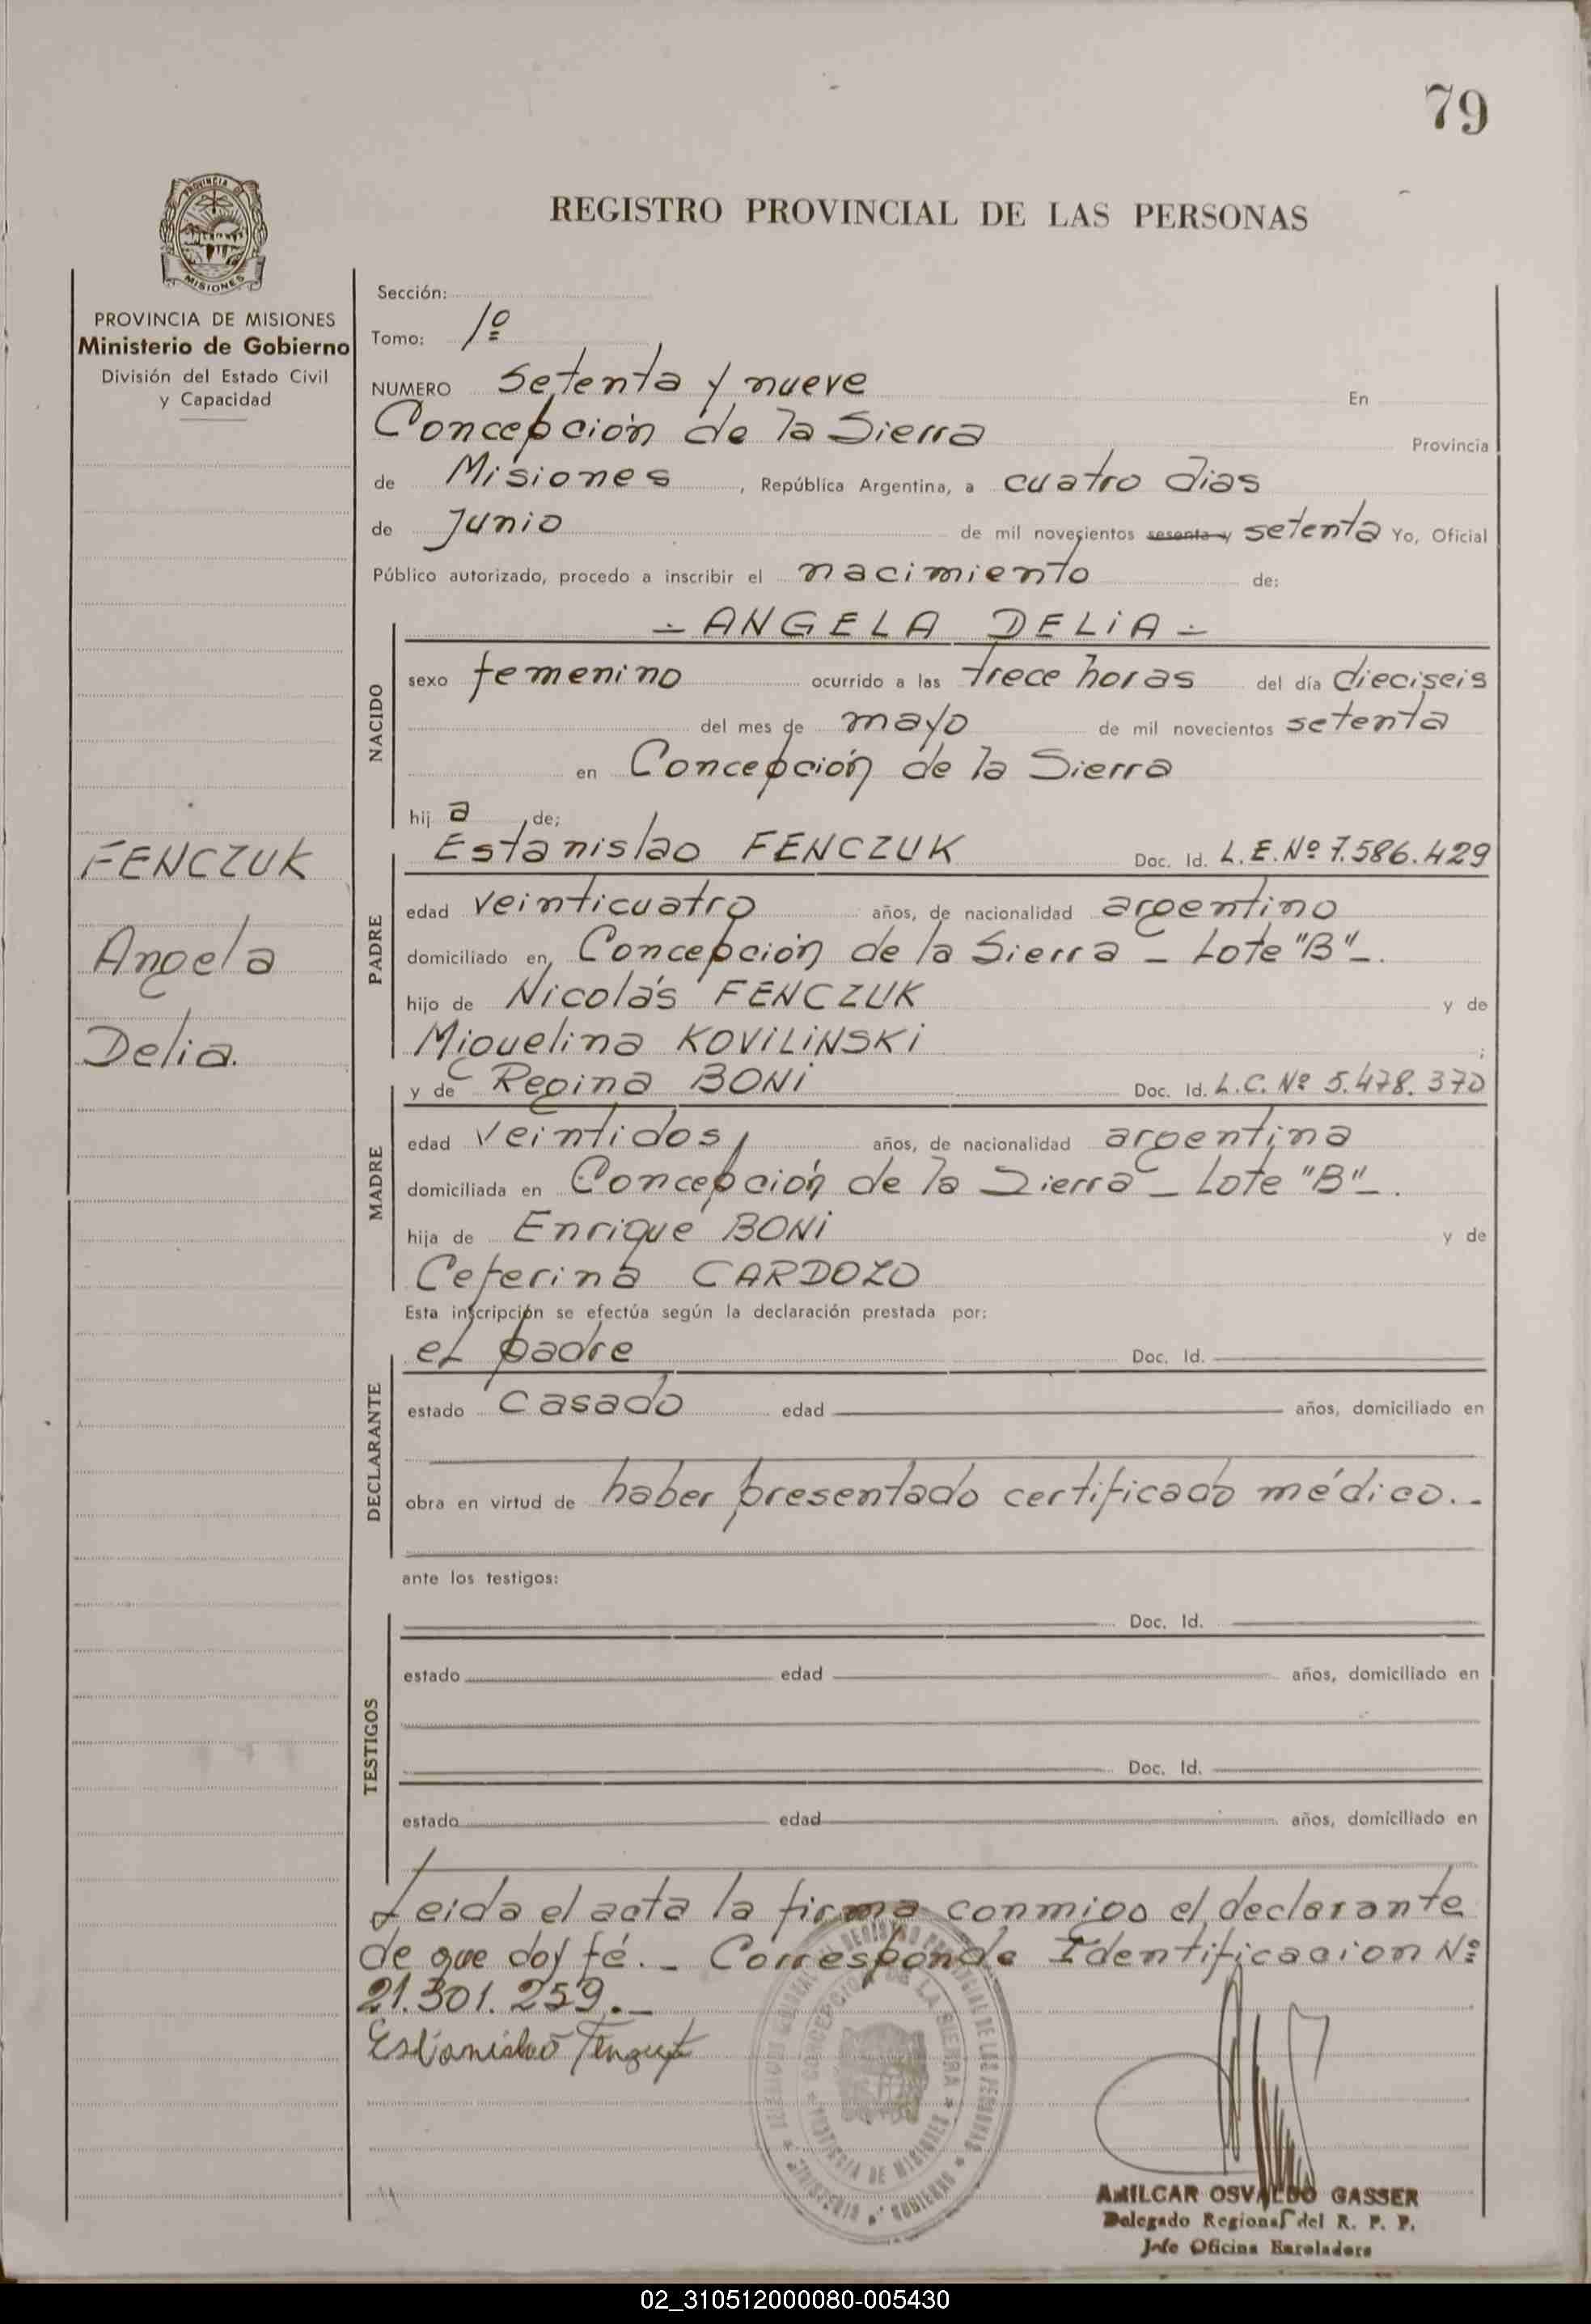 79
PROVINCIA DE
MISIONES
REGISTRO PROVINCIAL DE LAS PERSONAS
PROVINCIA DE MISIONES
Ministerio de Gobierno
División del Estado Civil
y Capacidad
FENCZUK
Angela
Delia.
Sección:
Tomo: 1º
NUMERO Setenta y nueve En
Concepción de la Sierra Provincia
de Misiones, República Argentina, a cuatro dias
de Junio de mil novecientos sesenta y setenta Yo, Oficial
Público autorizado, procedo a inscribir el nacimiento de:
- ANGELA DELIA -
NACIDO
sexo femenino ocurrido a las trece horas del día dieciseis
del mes de mayo de mil novecientos setenta
en Concepción de la Sierra
hij a de:
PADRE
Estanislao FENCZUK Doc. Id. L.E.Nº 7.586.429
edad veinticuatro años, de nacionalidad argentino
domiciliado en Concepción de la Sierra - Lote "B"-.
hijo de Nicolás FENCZUK y de
Miguelina KOVILINSKI ;
MADRE
y de Regina BONI Doc. Id. L.C. Nº 5.478.370
edad veintidos, años, de nacionalidad argentina
domiciliada en Concepción de la Sierra - Lote "B"-.
hija de Enrique BONI y de
Ceferina CARDOZO
Esta inscripción se efectúa según la declaración prestada por:
DECLARANTE
el padre Doc. Id.
estado casado edad años, domiciliado en
obra en virtud de haber presentado certificado médico.-
ante los testigos:
TESTIGOS
Doc. Id.
estado edad años, domiciliado en
Doc. Id.
estado edad años, domiciliado en
Leida el acta la firma conmigo el declarante
de que doy fé.- Corresponde Identificacion Nº
21.301.259.-
Estanislao
CONCEPCION DE LA SIERRA
PROVINCIA DE MISIONES
AMILCAR OSVALDO GASSER
Delegado Regional del R. P. P.
Jefe Oficina Enroladora
02_310512000080-005430